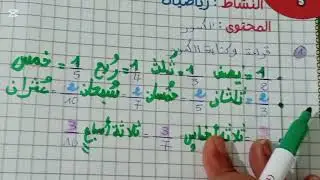 النشاط: رياضيات
المحتوى: الكسور
قراءة وكتابة الكسور
1/2 نصف 1/3 ثلث 1/4 ربع 1/5 خمس
2/3 ثلثان 2/5 خمسان 2/7 سبعان 2/10 عشران
ثلاثة أخماس 3/7 ثلاثة أسباع 3/10